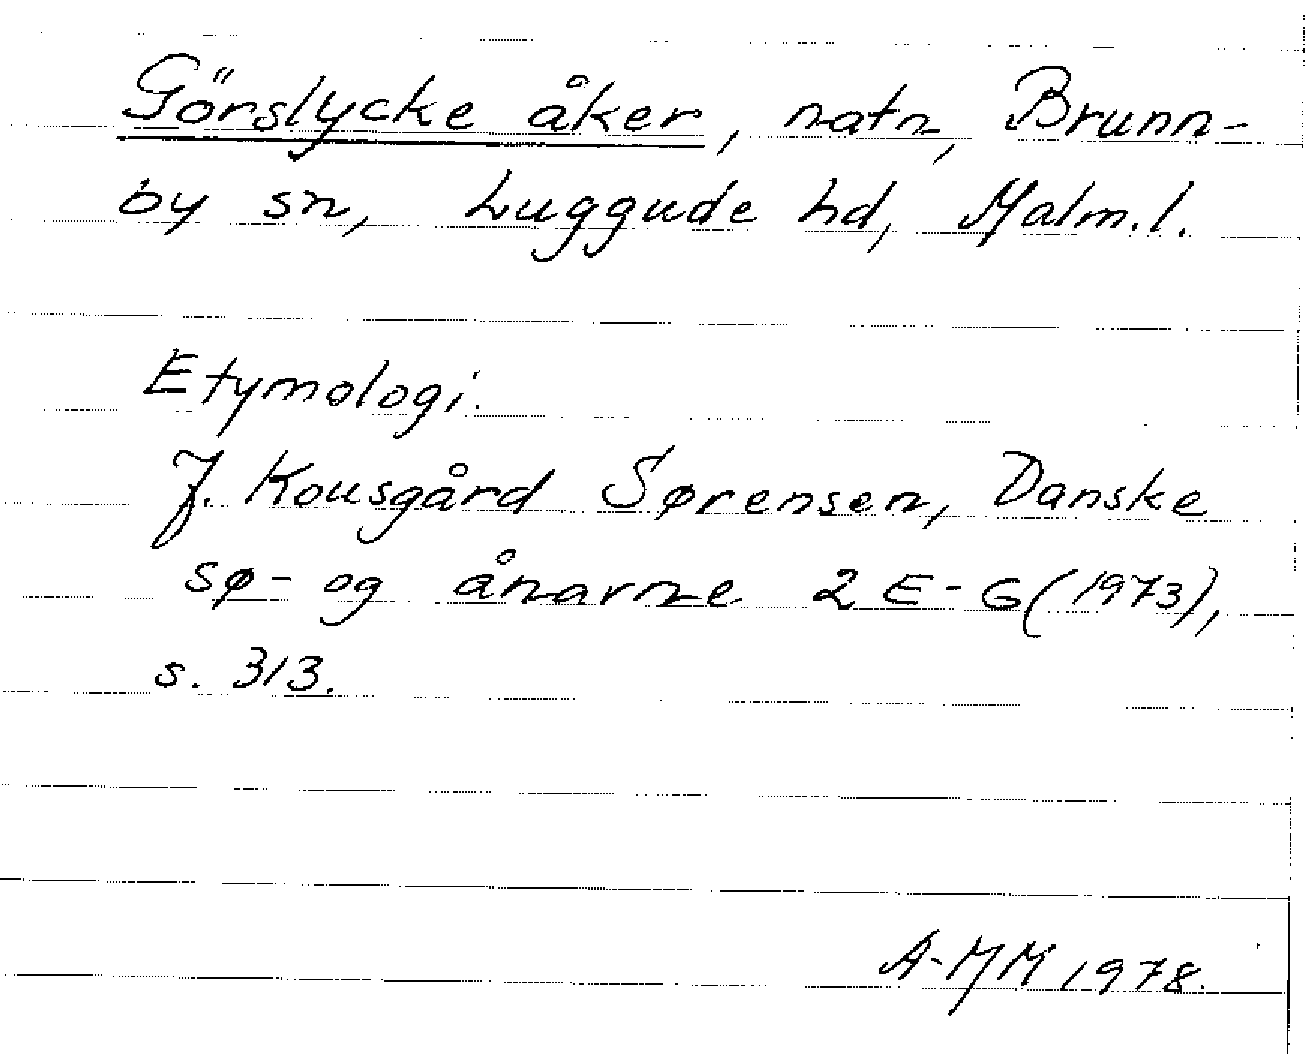 Görslycke åker, natn, Brunn-
by sn, Luggude hd, Malm.l.
Etymologi.
J. Kousgård Sørensen, Danske
sø- og ånavne 2 E-G (1973),
s. 313.
A-MM 1978.